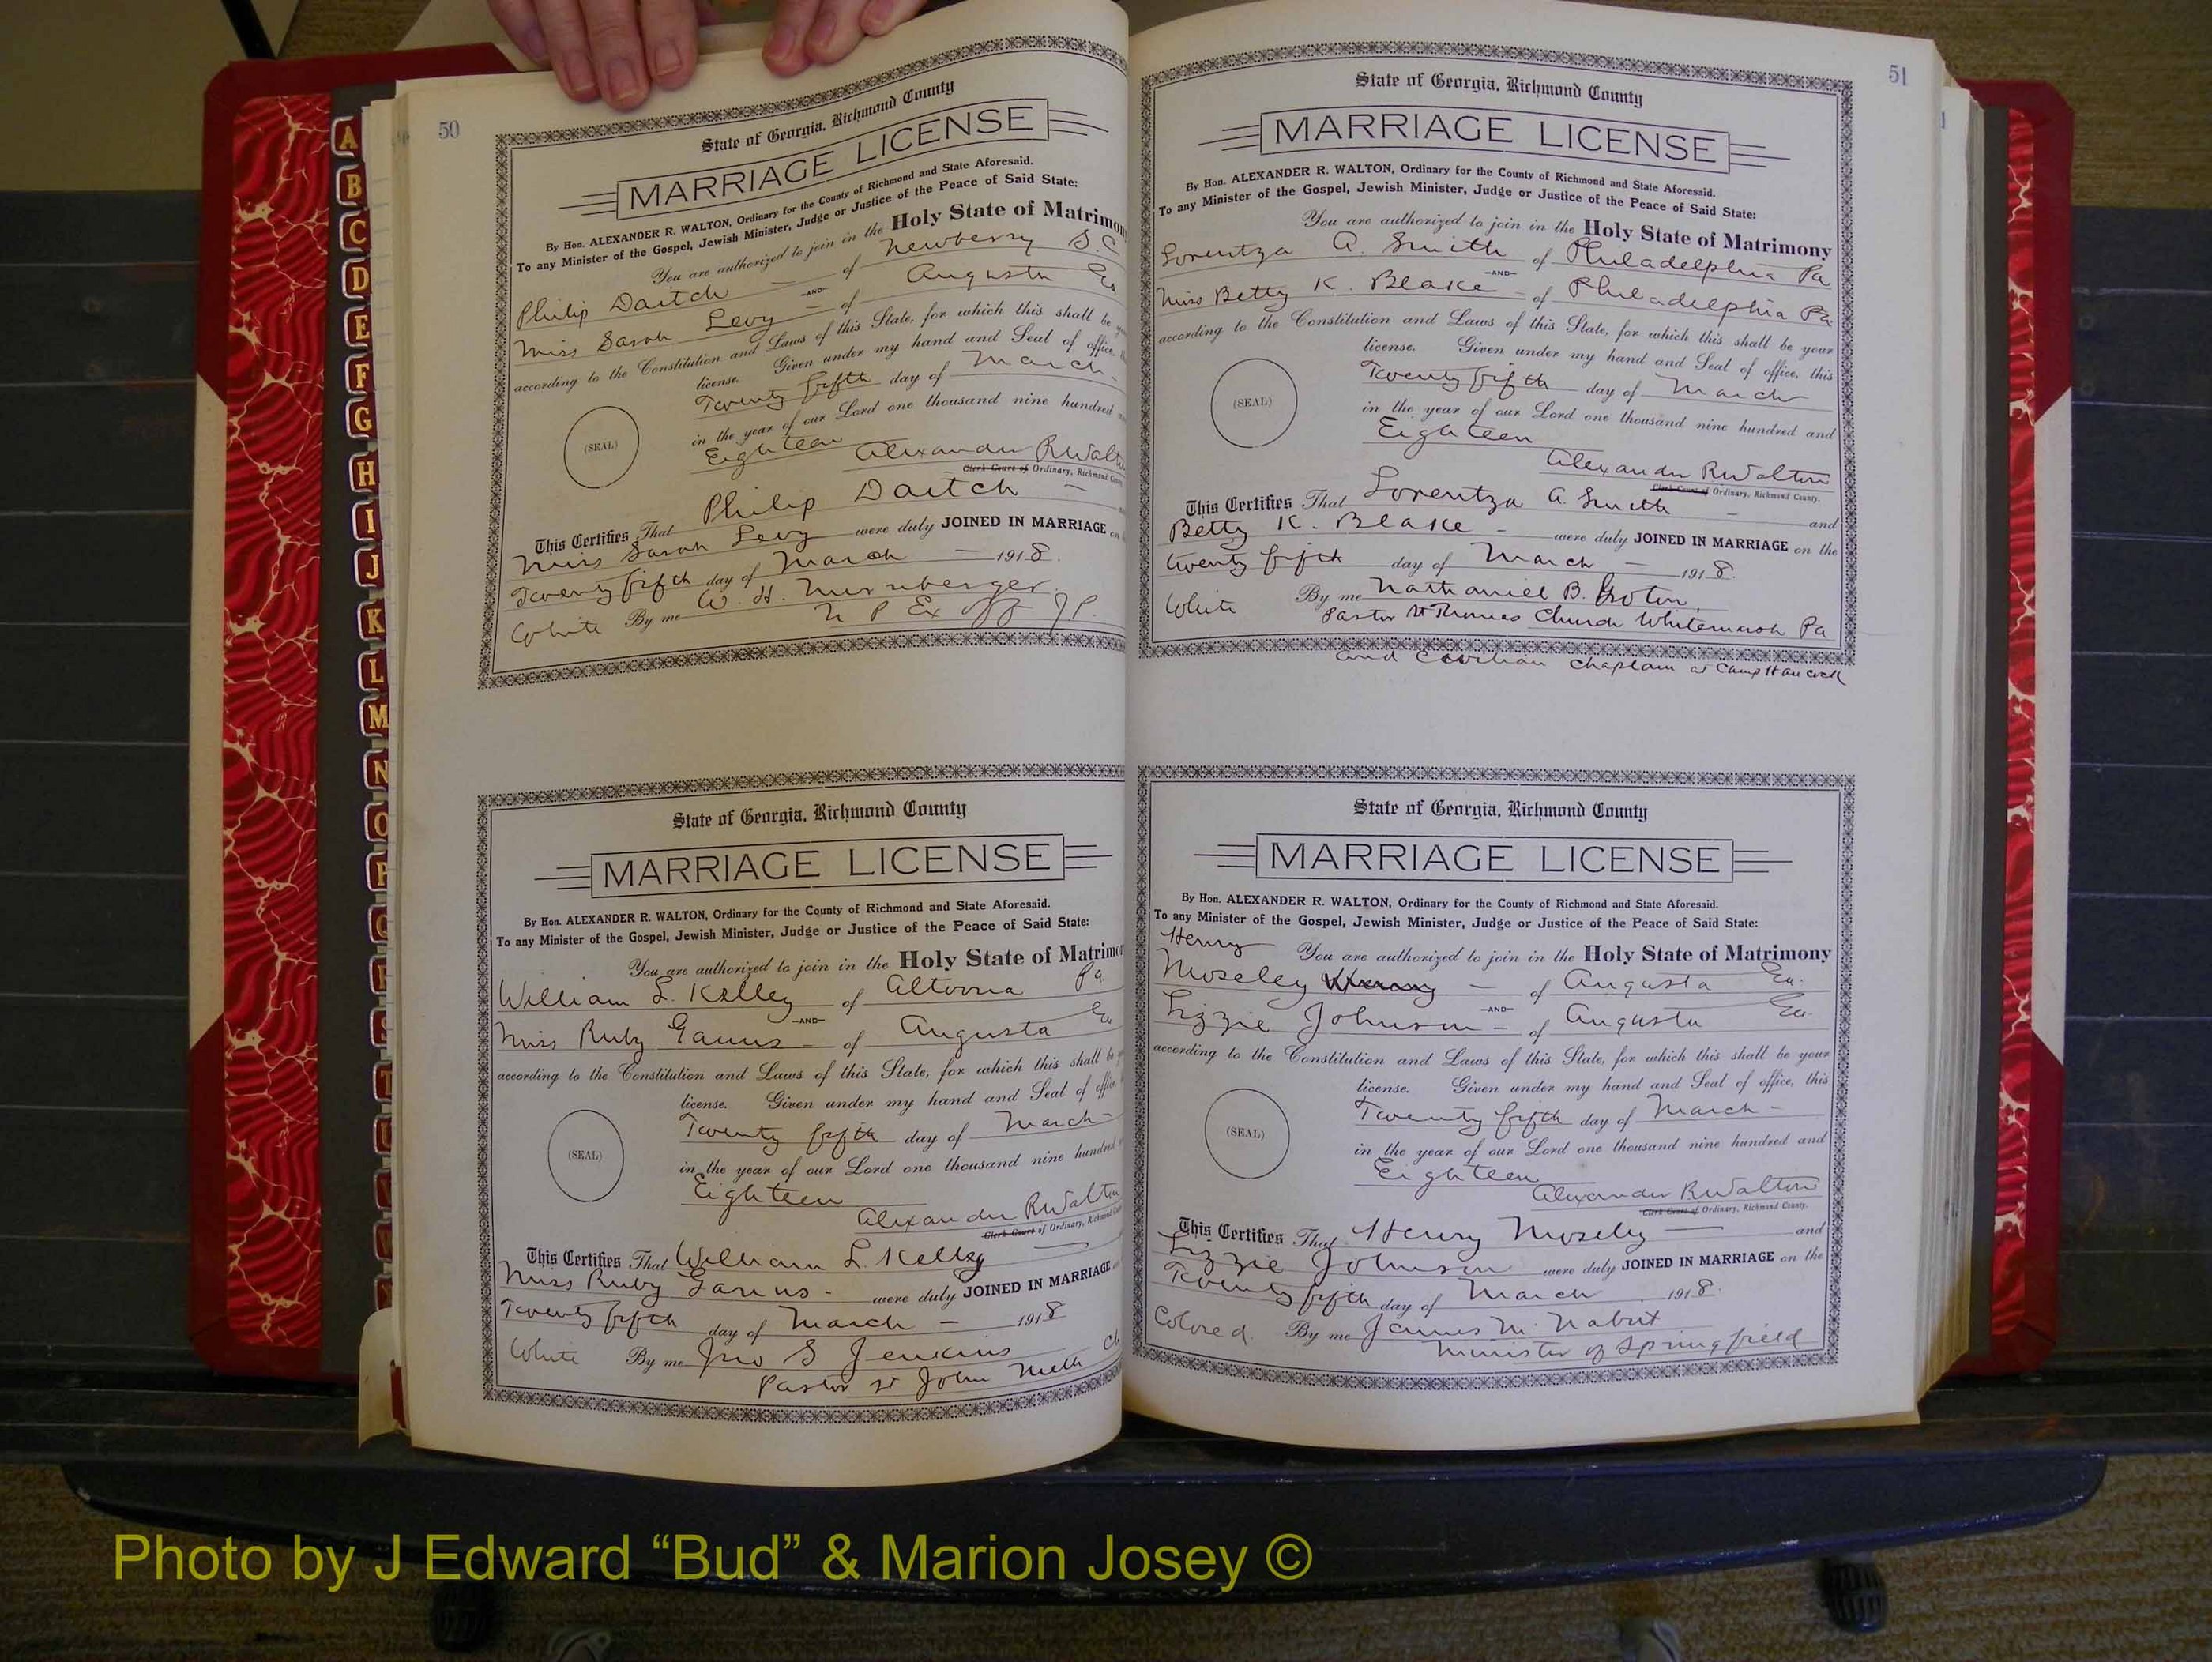 50
State of Georgia, Richmond County
MARRIAGE LICENSE
By Hon. ALEXANDER R. WALTON, Ordinary for the County of Richmond and State Aforesaid.
To any Minister of the Gospel, Jewish Minister, Judge or Justice of the Peace of Said State:
You are authorized to join in the Holy State of Matrimon
Philip Daitch — of Newberry S C
—AND—
Miss Sarah Levy — of Augusta Ga
according to the Constitution and Laws of this State, for which this shall be
license. Given under my hand and Seal of office,
Twenty fifth day of March -
in the year of our Lord one thousand nine hundred
Eighteen
(SEAL)
Alexander R Walt
Clerk Court of Ordinary, Richmond
This Certifies That Philip Daitch —
Miss Sarah Levy were duly JOINED IN MARRIAGE on
Twenty fifth day of March — 1918.
White By me W. H. Nurnberger
N P Ex Off J P.
State of Georgia, Richmond County
MARRIAGE LICENSE
By Hon. ALEXANDER R. WALTON, Ordinary for the County of Richmond and State Aforesaid.
To any Minister of the Gospel, Jewish Minister, Judge or Justice of the Peace of Said State:
You are authorized to join in the Holy State of Matrimo
William L. Kelley of Altoona Pa.
—AND—
Miss Ruby Garus — of Augusta Ga
according to the Constitution and Laws of this State, for which this shall be
license. Given under my hand and Seal of office,
Twenty fifth day of March -
in the year of our Lord one thousand nine hundred
Eighteen
(SEAL)
Alexander R Walton
Clerk Court of Ordinary, Richmond
This Certifies That William L. Kelley —
Miss Ruby Garus - were duly JOINED IN MARRIAGE
Twenty fifth day of March — 1918
White By me Jno S Jenkins
Pastor St John Meth Ch
51
State of Georgia, Richmond County
MARRIAGE LICENSE
By Hon. ALEXANDER R. WALTON, Ordinary for the County of Richmond and State Aforesaid.
To any Minister of the Gospel, Jewish Minister, Judge or Justice of the Peace of Said State:
You are authorized to join in the Holy State of Matrimony
Lorentza A. Smith of Philadelphia Pa
—AND—
Miss Betty K. Blake - of Philadelphia Pa
according to the Constitution and Laws of this State, for which this shall be your
license. Given under my hand and Seal of office, this
Twenty fifth day of March
in the year of our Lord one thousand nine hundred and
Eighteen
(SEAL)
Alexander R Walton
Clerk Court of Ordinary, Richmond County.
This Certifies That Lorentza A. Smith — and
Betty K. Blake - were duly JOINED IN MARRIAGE on the
twenty fifth day of March — 1918.
White By me Nathaniel B. Groton,
Pastor St Thomas Church Whitemarsh Pa
and Civilian Chaplain at Camp Hancock
State of Georgia, Richmond County
MARRIAGE LICENSE
By Hon. ALEXANDER R. WALTON, Ordinary for the County of Richmond and State Aforesaid.
To any Minister of the Gospel, Jewish Minister, Judge or Justice of the Peace of Said State:
Henry You are authorized to join in the Holy State of Matrimony
Moseley Henry — of Augusta Ga.
—AND—
Lizzie Johnson — of Augusta Ga.
according to the Constitution and Laws of this State, for which this shall be your
license. Given under my hand and Seal of office, this
Twenty fifth day of March -
in the year of our Lord one thousand nine hundred and
Eighteen
(SEAL)
Alexander R Walton
Clerk Court of Ordinary, Richmond County.
This Certifies That Henry Mosely — and
Lizzie Johnson were duly JOINED IN MARRIAGE on the
Twenty fifth day of March 1918.
Colored. By me James M. Nabrit
Minister of Springfield
A
B
C
D
E
F
G
H
I
J
K
L
M
N
O
P
Q
R
S
T
U
V
W
Photo by J Edward “Bud” & Marion Josey ©